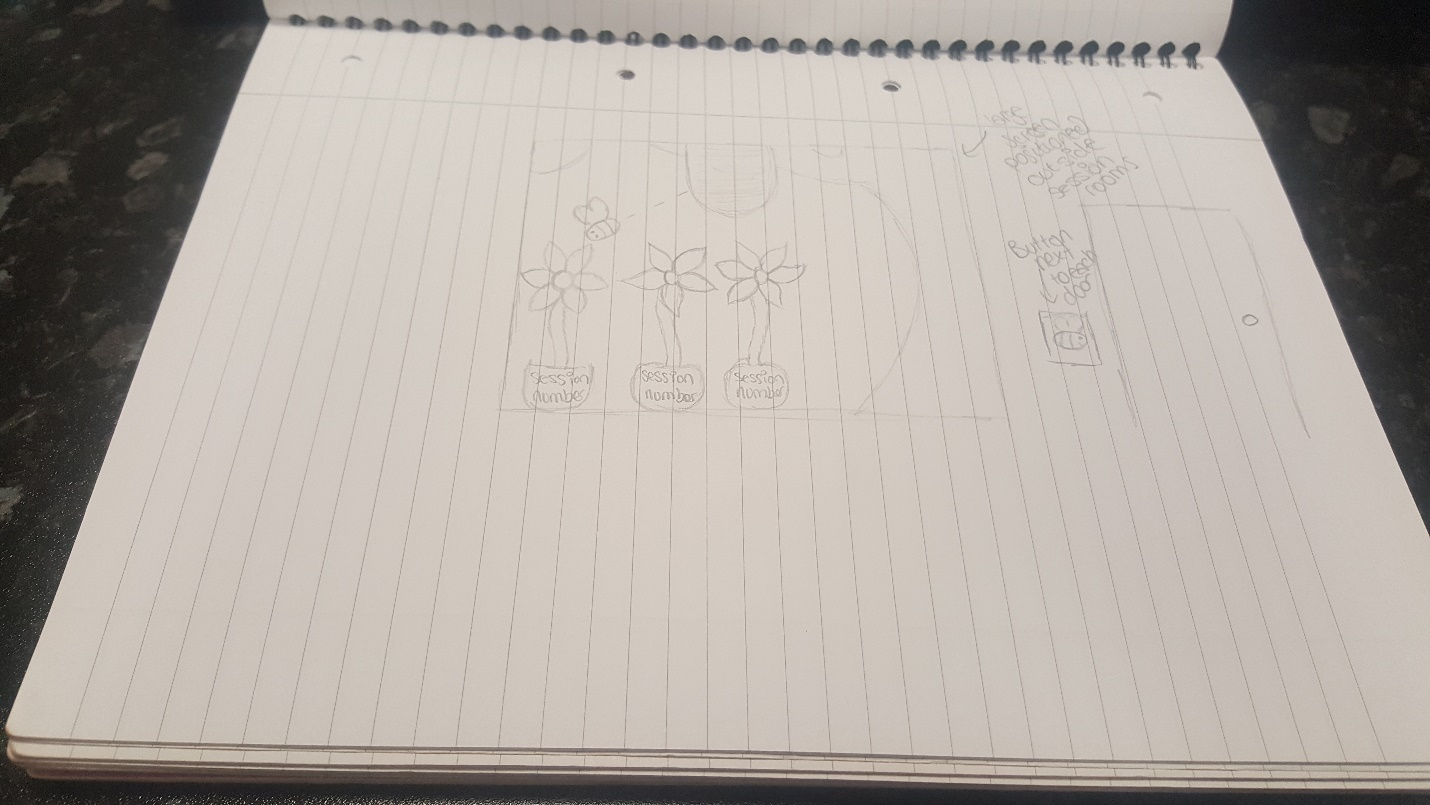 large
screen
positioned
outside
session
rooms
Button
next
to each
door
session
number
session
number
session
number